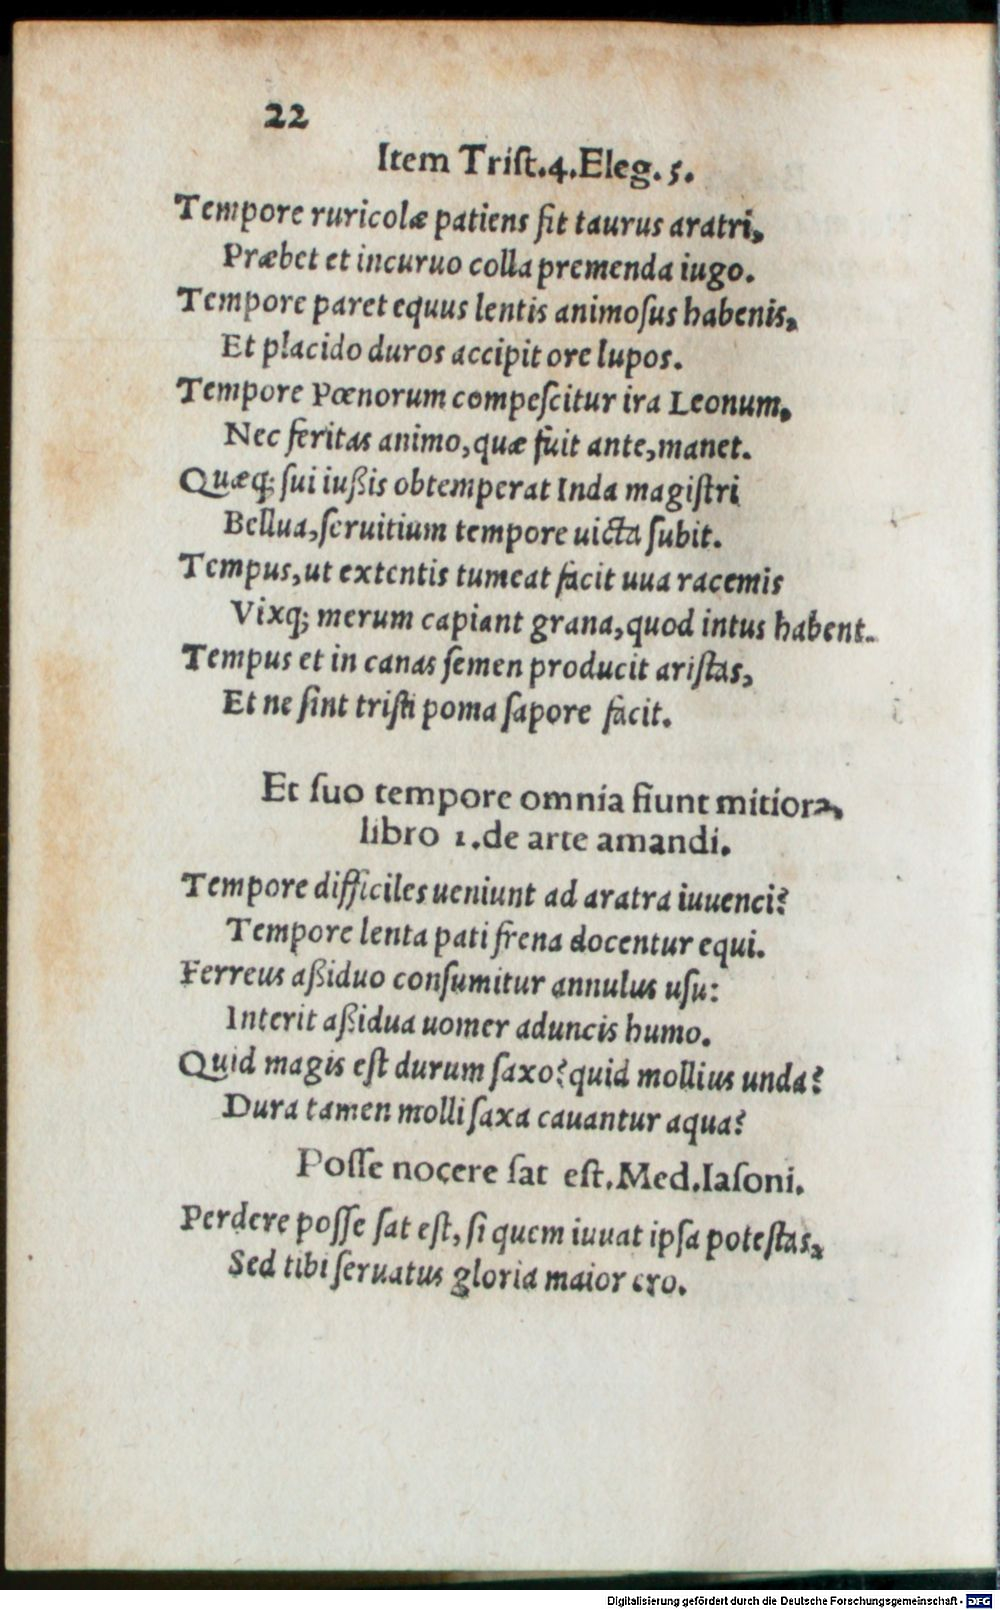 22
Item Triſt.4.Eleg.5.
Tempore ruricolæ patiens fit taurus aratri,
Præbet et incuruo colla premenda iugo.
Tempore paret equus lentis animoſus habenis,
Et placido duros accipit ore lupos.
Tempore Pœnorum compeſcitur ira Leonum,
Nec feritas animo, quæ fuit ante, manet.
Quæq; ſui iußis obtemperat Inda magiſtri
Bellua, ſeruitium tempore uicta ſubit.
Tempus, ut extentis tumeat facit uua racemis
Vixq; merum capiant grana, quod intus habent.
Tempus et in canas ſemen producit ariſtas,
Et ne ſint triſti poma ſapore facit.
Et ſuo tempore omnia fiunt mitiora,
libro 1.de arte amandi.
Tempore difficiles ueniunt ad aratra iuuenci?
Tempore lenta pati frena docentur equi.
Ferreus aßiduo conſumitur annulus uſu:
Interit aßidua uomer aduncis humo.
Quid magis eſt durum ſaxo? quid mollius unda?
Dura tamen molli ſaxa cauantur aqua?
Poſſe nocere ſat eſt. Med. Iaſoni.
Perdere poſſe ſat eſt, ſi quem iuuat ipſa poteſtas,
Sed tibi ſeruatus gloria maior ero.
Digitalisierung gefördert durch die Deutsche Forschungsgemeinschaft - DFG